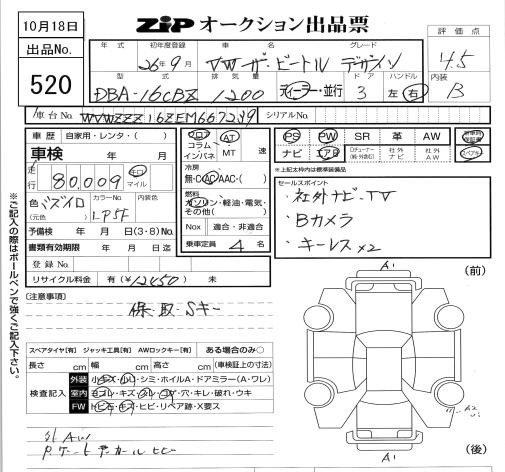 10月18日
ZIP オークション出品票
評価点
出品No.
520
年式
初年度登録
車名
グレード
26年9月
VW ザ・ビートル デザイン
4.5
型式
排気量
ドア
ハンドル
内装
DBA-16CBZ
1200
ディーラー・並行
3
左・右
B
車台No.
WVWZZZ16ZEM667239
シリアルNo.
車歴
自家用・レンタ・( )
車検
走行
80,009
キロ
マイル
色
(元色)
カラーNo.
内装色
LP5F
予備検 年 月 日(3・8)No.
書類有効期限 年 月 日迄
登録No.
リサイクル料金 有(¥12450) 無
フロア
コラム
インパネ
AT
MT
速
冷房
無・C・AC・AAC・( )
燃料
ガソリン・軽油・電気・その他( )
Nox
適合・非適合
乗車定員 4 名
PS
PW
SR
革
AW
ナビ
エアB
社外ナビ
社外AW
スペアキー
※上記太枠内は標準装備品
セールスポイント
・社外ナビ・TV
・Bカメラ
・キーレス×2
※ご記入の際はボールペンで強くご記入下さい。
[注意事項]
保・取・Sキー
スペアタイヤ[有] ジャッキ工具[有] AWロックキー[有] ある場合のみ○
長さ cm 幅 cm 高さ cm (車検証上の寸法)
検査記入
外装
小キズ・小凹・シミ・ホイルA・ドアミラー(A・ワレ)
室内
ヨゴレ・キズ・スレ・コゲ・穴・キレ・破れ・ウキ
FW
トビ石・キズ・ヒビ・リペア跡・X要ス
外AW
A1
(前)
A1
(後)